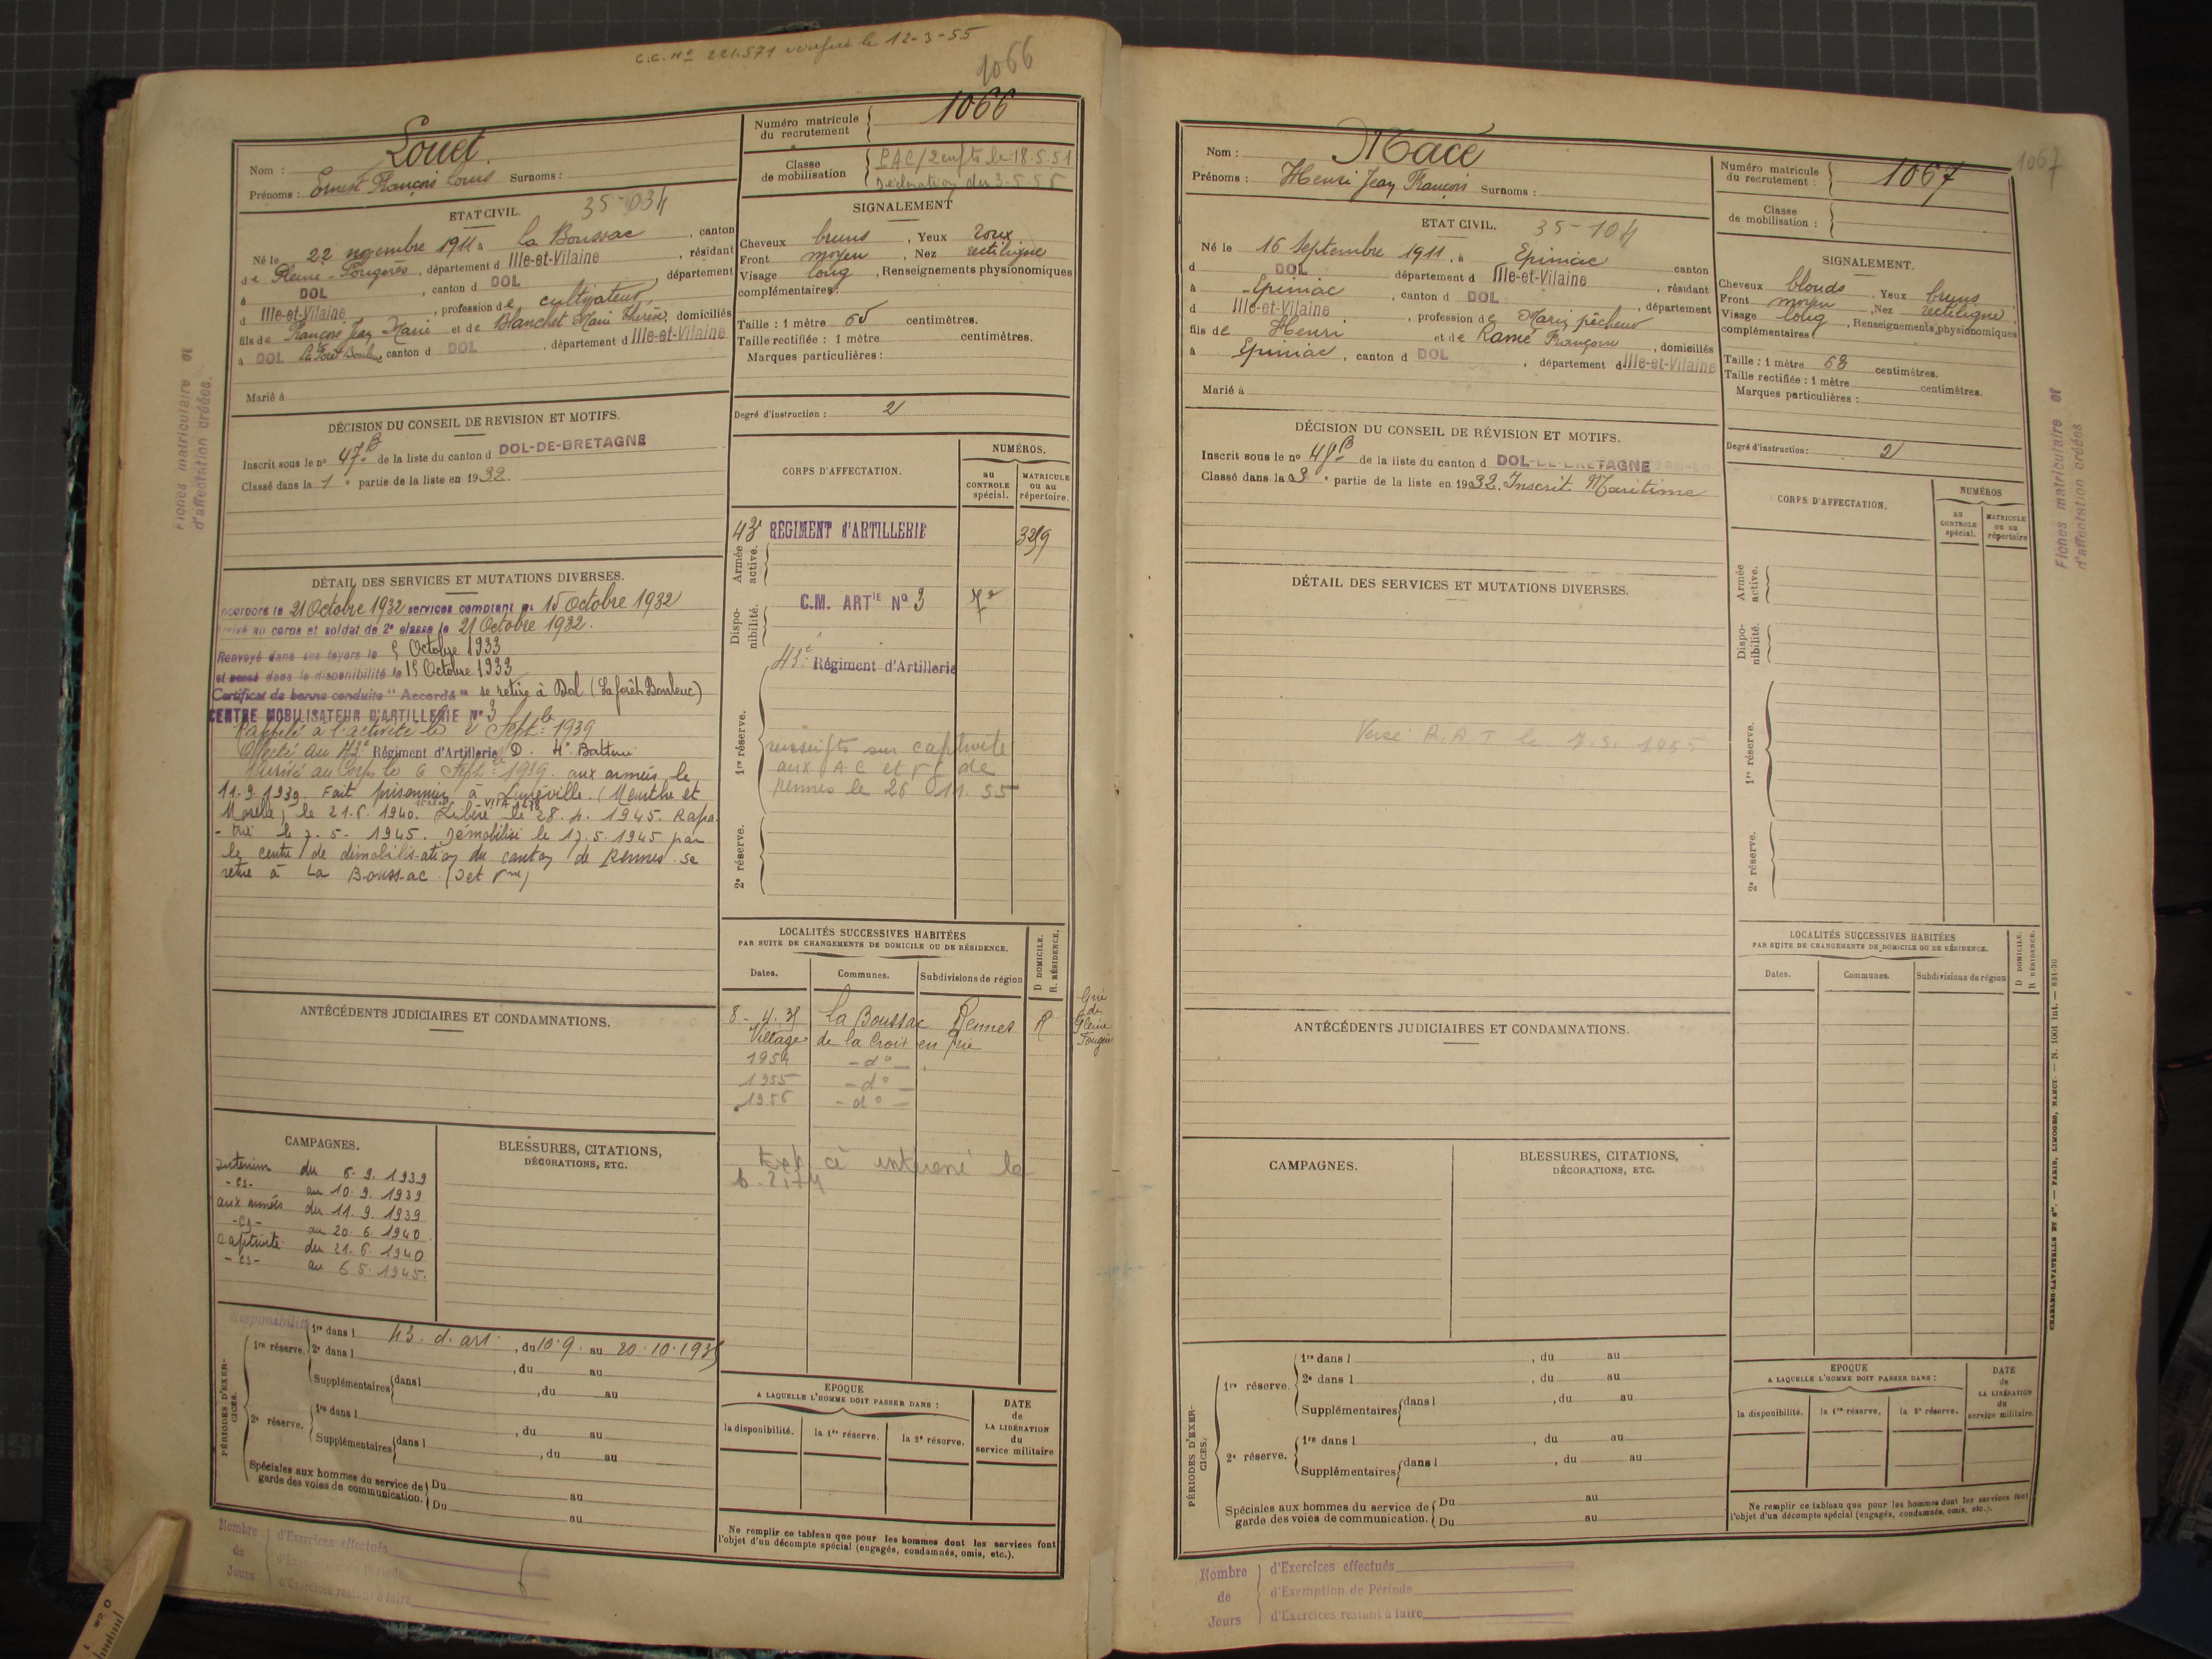 C.C. Nº 221.571 le 12-3-55
1066
Nom : Louet.
Prénoms : Ernest François Louis Surnoms :
Numéro matricule du recrutement 1066
Classe de mobilisation PAC/2 enfts le 18.5.51
Déclaration du 3-5-55
ETAT CIVIL. 35-034
Né le 22 novembre 1911 à la Boussac, canton
de Pleine-Fougères, département d Ille-et-Vilaine, résidant
à DOL, canton d DOL, département
d Ille-et-Vilaine, profession de cultivateur,
fils de François Jean Marie et de Blanchet Marie Thérèse, domiciliés
à DOL La Forêt canton d DOL, département d Ille-et-Vilaine
Marié à
SIGNALEMENT
Cheveux bruns, Yeux roux
Front moyen, Nez rectiligne
Visage long, Renseignements physionomiques
complémentaires:
Taille : 1 mètre 65 centimètres.
Taille rectifiée : 1 mètre centimètres.
Marques particulières :
Degré d'instruction : 2
DÉCISION DU CONSEIL DE REVISION ET MOTIFS.
Inscrit sous le nº 47 B de la liste du canton d DOL-DE-BRETAGNE
Classé dans la 1e partie de la liste en 1932.
CORPS D'AFFECTATION.
NUMÉROS.
au CONTROLE spécial.
MATRICULE ou au répertoire.
Armée active.
43e RÉGIMENT d'ARTILLERIE
Disponibilité.
C.M. ARTIE Nº 3
1re réserve.
43e Régiment d'Artillerie
renseignts sur captivité
aux A C et V G de
Rennes le 26 011. 55
2e réserve.
DÉTAIL DES SERVICES ET MUTATIONS DIVERSES.
Incorporé le 21 Octobre 1932 services comptant du 15 Octobre 1932
Arrivé au corps et soldat de 2e classe le 21 Octobre 1932.
Renvoyé dans ses foyers le 5 Octobre 1933
et passé dans la disponibilité le 15 Octobre 1933
Certificat de bonne conduite "Accordé" se retire à Dol (La forêt)
CENTRE MOBILISATEUR D'ARTILLERIE Nº 3
Rappelé à l'activité le 2 Septbre 1939
Affecté au 43e Régiment d'Artillerie D. 4e Batterie
Arrivé au Corps le 6 Septbre 1939. aux armées le
11.9.1939. Fait prisonnier à Lunéville (Meurthe et
Moselle) le 21.6.1940. Libéré le 28.4.1945. Rapa-
-trié le 7-5-1945. Démobilisé le 17.5.1945 par
le centre de démobilisation du canton de Rennes. Se
retire à La Boussac
LOCALITÉS SUCCESSIVES HABITÉES
PAR SUITE DE CHANGEMENTS DE DOMICILE OU DE RÉSIDENCE.
Dates. Communes. Subdivisions de région D DOMICILE. R. RÉSIDENCE.
8-4.35 La Boussac Rennes R
Village de la Croix en
1954 -dº-
1955 -dº-
1956 -dº-
Gnie de Pleine Fougères
ANTÉCÉDENTS JUDICIAIRES ET CONDAMNATIONS.
CAMPAGNES.
Intérieur du 6.9.1939
-cs- au 10.9.1939
aux armées du 11.9.1939
-cs- au 20.6.1940.
Captivité du 21.6.1940
-cs- au 6 5.1945.
BLESSURES, CITATIONS,
DÉCORATIONS, ETC.
PÉRIODES D'EXERCICES.
disponibilité
1re réserve. 1re dans l 43. d. art., du 10.9. au 20.10.1935
2e dans l , du au
Supplémentaires dans l , du au
2e réserve. 1re dans l , du au
Supplémentaires dans l , du au
Spéciales aux hommes du service de garde des voies de communication. Du au
Du au
EPOQUE
A LAQUELLE L'HOMME DOIT PASSER DANS :
la disponibilité. la 1re réserve. la 2e réserve.
DATE de LA LIBÉRATION du service militaire
Ne remplir ce tableau que pour les hommes dont les services font
l'objet d'un décompte spécial (engagés, condamnés, omis, etc.).
Nombre de Jours
d'Exercices effectués
d'Exemption de Période
d'Exercices restant à faire
Fiches matriculaire et
d'affectation créées.
1067
Nom : Macé
Prénoms : Henri Jean François Surnoms :
Numéro matricule du recrutement : 1067
Classe de mobilisation :
ETAT CIVIL. 35-104
Né le 16 Septembre 1911, à Epiniac canton
d DOL département d Ille-et-Vilaine, résidant
à Epiniac, canton d DOL, département
d Ille-et-Vilaine, profession de Marin pêcheur
fils de Henri et de Ramé Françoise, domiciliés
à Epiniac, canton d DOL, département d Ille-et-Vilaine
Marié à
SIGNALEMENT.
Cheveux blonds, Yeux bruns
Front moyen, Nez rectiligne,
Visage long, Renseignements physionomiques
complémentaires :
Taille : 1 mètre 63 centimètres.
Taille rectifiée : 1 mètre centimètres.
Marques particulières :
Degré d'instruction : 2
DÉCISION DU CONSEIL DE RÉVISION ET MOTIFS.
Inscrit sous le nº 48 B de la liste du canton d DOL-DE-BRETAGNE
Classé dans la 3e partie de la liste en 1932. Inscrit Maritime
CORPS D'AFFECTATION.
NUMÉROS
au CONTROLE spécial.
MATRICULE ou au répertoire
Armée active.
Disponibilité.
1re réserve.
2e réserve.
DÉTAIL DES SERVICES ET MUTATIONS DIVERSES.
Versé R.A.T le 7.3.1955
LOCALITÉS SUCCESSIVES HABITÉES
PAR SUITE DE CHANGEMENTS DE DOMICILE OU DE RÉSIDENCE.
Dates. Communes. Subdivisions de région D DOMICILE. R RÉSIDENCE.
ANTÉCÉDENTS JUDICIAIRES ET CONDAMNATIONS.
CAMPAGNES.
BLESSURES, CITATIONS,
DÉCORATIONS, ETC.
PÉRIODES D'EXERCICES.
1re réserve. 1re dans l , du au
2e dans l , du au
Supplémentaires dans l , du au
2e réserve. 1re dans l , du au
Supplémentaires dans l , du au
Spéciales aux hommes du service de garde des voies de communication. Du au
Du au
EPOQUE
A LAQUELLE L'HOMME DOIT PASSER DANS :
la disponibilité. la 1re réserve. la 2e réserve.
DATE de LA LIBÉRATION du service militaire.
Ne remplir ce tableau que pour les hommes dont les services font
l'objet d'un décompte spécial (engagés, condamnés, omis, etc.).
Nombre de Jours
d'Exercices effectués
d'Exemption de Période
d'Exercices restant à faire
Fiches matriculaire et
d'affectation créées
CHARLES-LAVAUZELLE ET Cie. — PARIS, LIMOGES, NANCY. — N. 1001 int. — 831-30